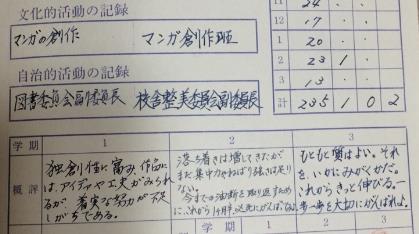 文化的活動の記録
マンガの創作
マンガ創作班
自治的活動の記録
図書委員会副委員長
校舎整美委員会副委員長
11 24
12 17
1 20
2 23 1
3 13
計 235 1 0 2
学期 1 2 3
概評
独創性に富み、作品に
は、アイデアや工夫がみられ
るが、着実な努力が不足
しがちである。
落ち着きは増してきたが
まだ集中力やねばり強さは足り
ない。
今までの油断を取り返すため
に、これから1ヶ月半、必死にがんばれ。
もともと質はよい。それ
を、いかにみがくかだ。
これからきっと伸びる。一
歩一歩を大切にがんばれよ。
1 2 3